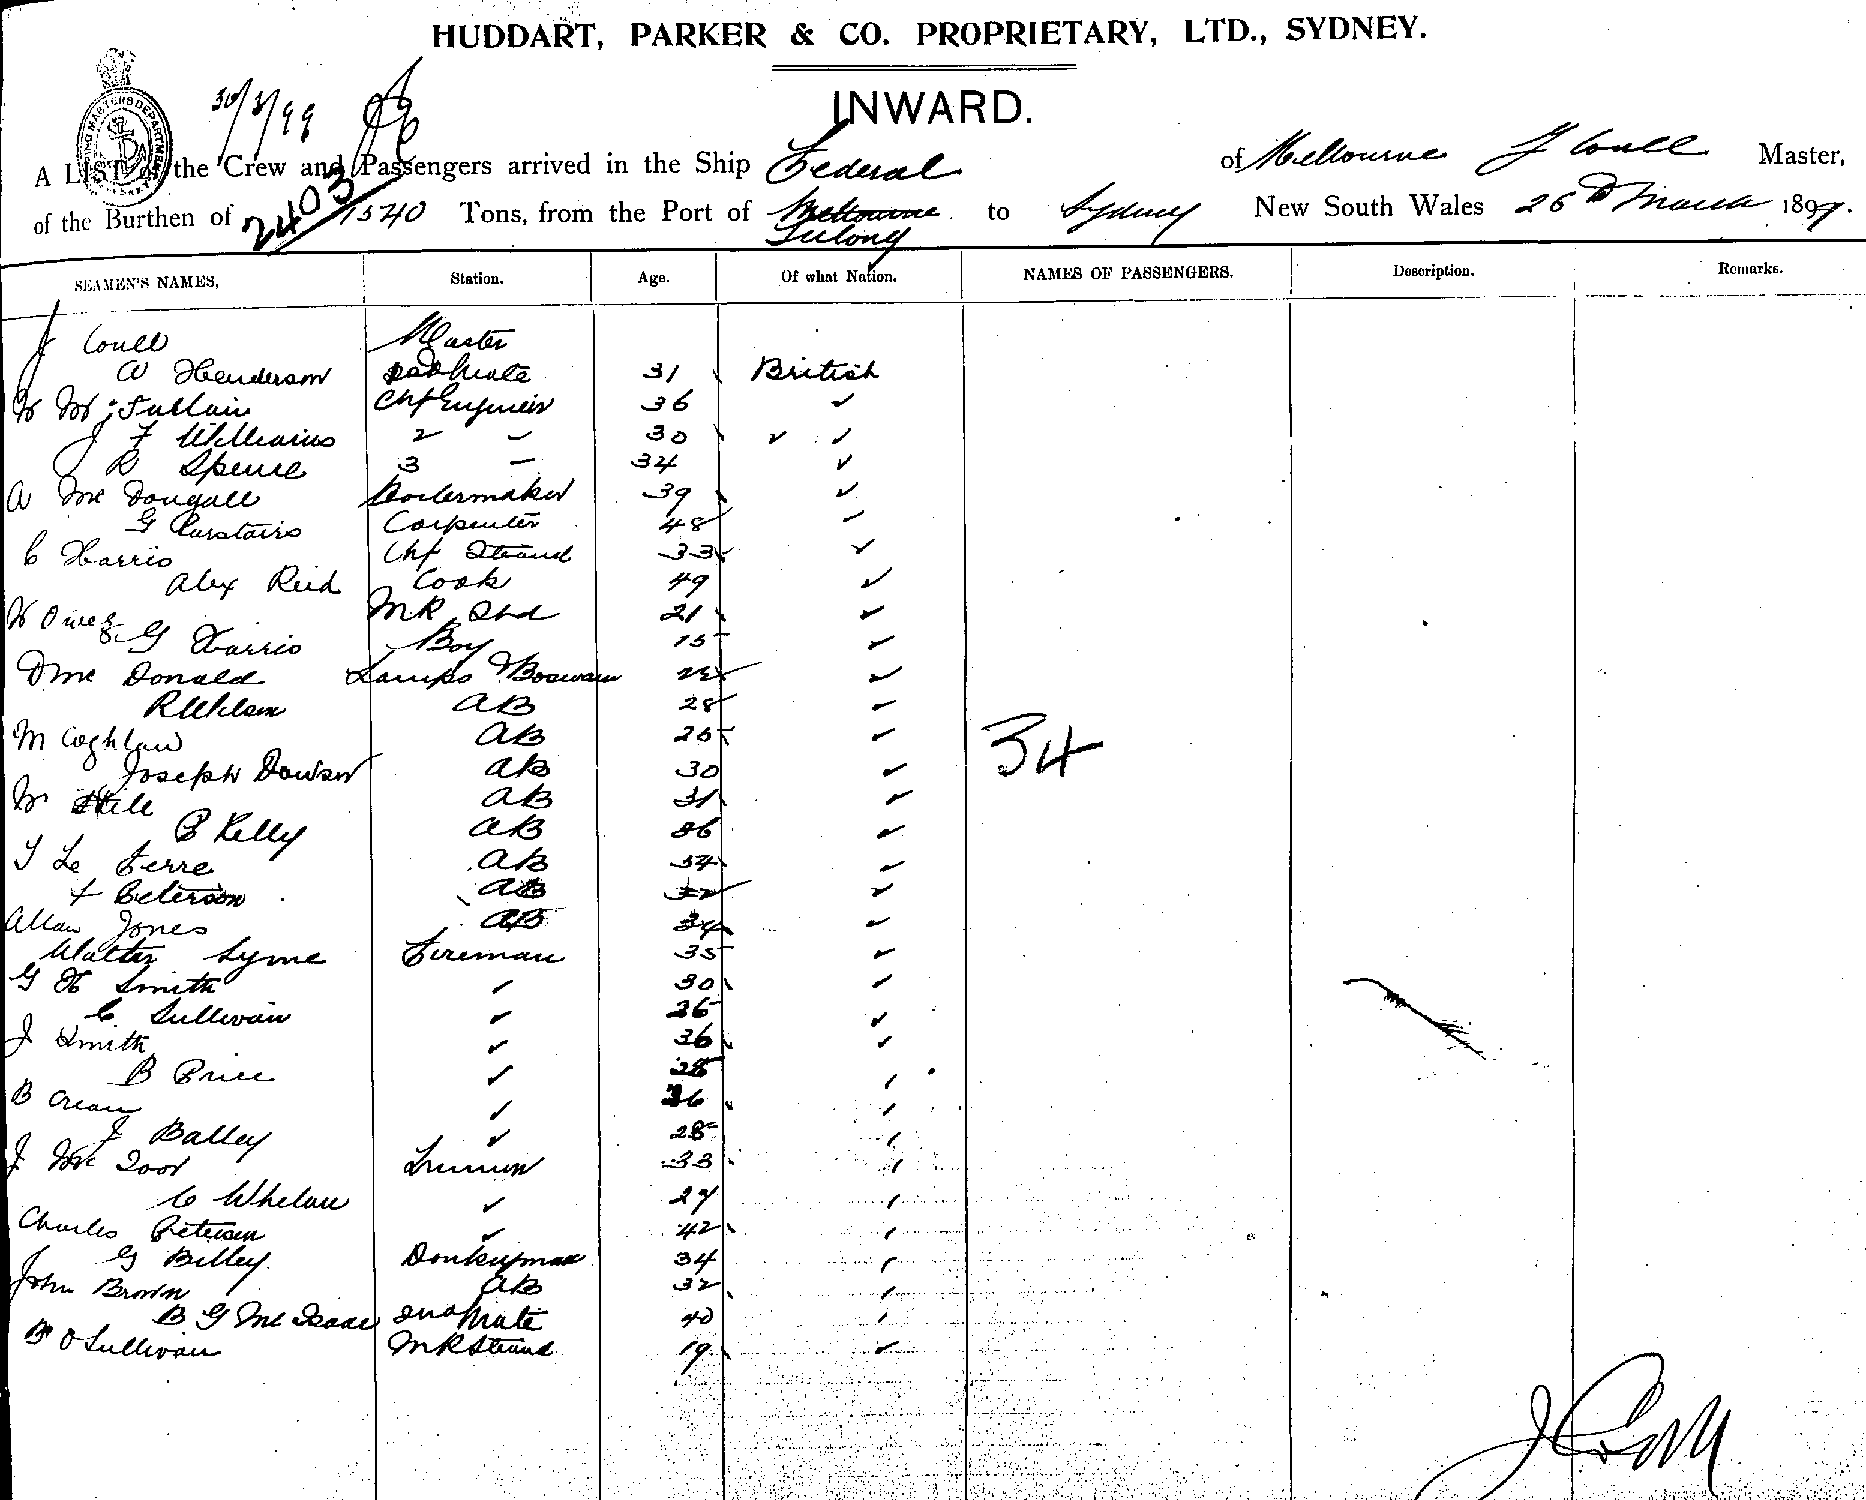 HUDDART, PARKER & CO. PROPRIETARY, LTD., SYDNEY.
30/3/99
INWARD.
A LIST of the Crew and Passengers arrived in the Ship Federal of Melbourne J Coull Master,
of the Burthen of 2403/1540 Tons, from the Port of Melbourne Geelong to Sydney New South Wales 26th March 1899.
SEAMEN'S NAMES, Station. Age. Of what Nation. NAMES OF PASSENGERS. Description. Remarks.
J Coull Master
W Henderson Mate 31 British
Chf Engineer 36 ✓
J F Williams 2 - 30 ✓ ✓
R Spence 3 - 34 ✓
A McDougall Boilermaker 39 ✓
G Carstairs Carpenter 48 ✓
C Harris Chf Steward 33 ✓
Alex Reid Cook 49 ✓
W Owen MR Std 21 ✓
G Harris Boy 15 ✓
D McDonald Lamps & Boswain ✓
R Wilson AB 28 ✓
M Coghlan AB 25 ✓
34
Joseph Dowser AB 30 ✓
M Hill AB 31 ✓
P Kelly AB 36 ✓
J Le Ferre AB 34 ✓
Peterson AB 32 ✓
Allan Jones AB 34 ✓
Walter Syme Fireman 35 ✓
G H Smith ✓ 30 ✓
C Sullivan ✓ 26 ✓
J Smith ✓ 36 ✓
B Price ✓ 28
B Crean ✓ 36
J Balley ✓ 28
J Mc Trimmer 33
C Whelan ✓ 27
Charles Petersen ✓ 42
G Billey Donkeyman 34
John Brown AB 32
B G McIsaac 2nd Mate 40
O'Sullivan MR Steward 19 ✓
J Coull